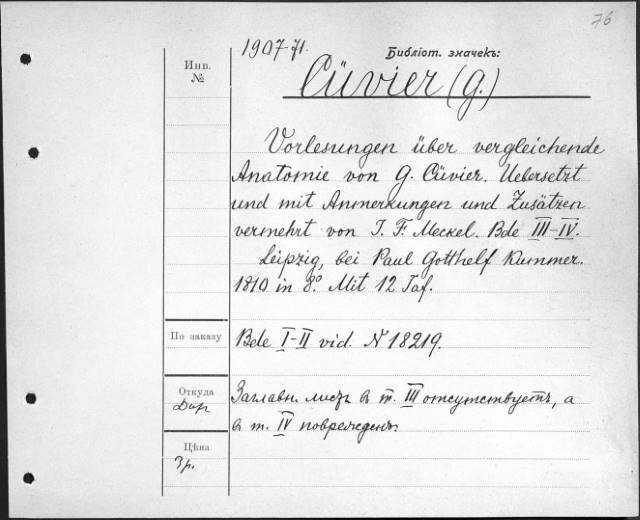 76
1907-71.
Библіот. значекъ:
Инв.
№
Cüvier (G.)
Vorlesungen über vergleichende
Anatomie von G. Cüvier. Uebersetzt
und mit Anmerkungen und Zusätzen
vermehrt von J. F. Meckel. Bde III–IV.
Leipzig, bei Paul Gotthelf Kummer.
1810 in 8°. Mit 12 Taf.
По заказу
Bde I–II vid. N 18219.
Откуда
Дар
Заглавн. листъ в т. III отсутствуетъ, а
в т. IV поврежденъ.
Цѣна
3р.